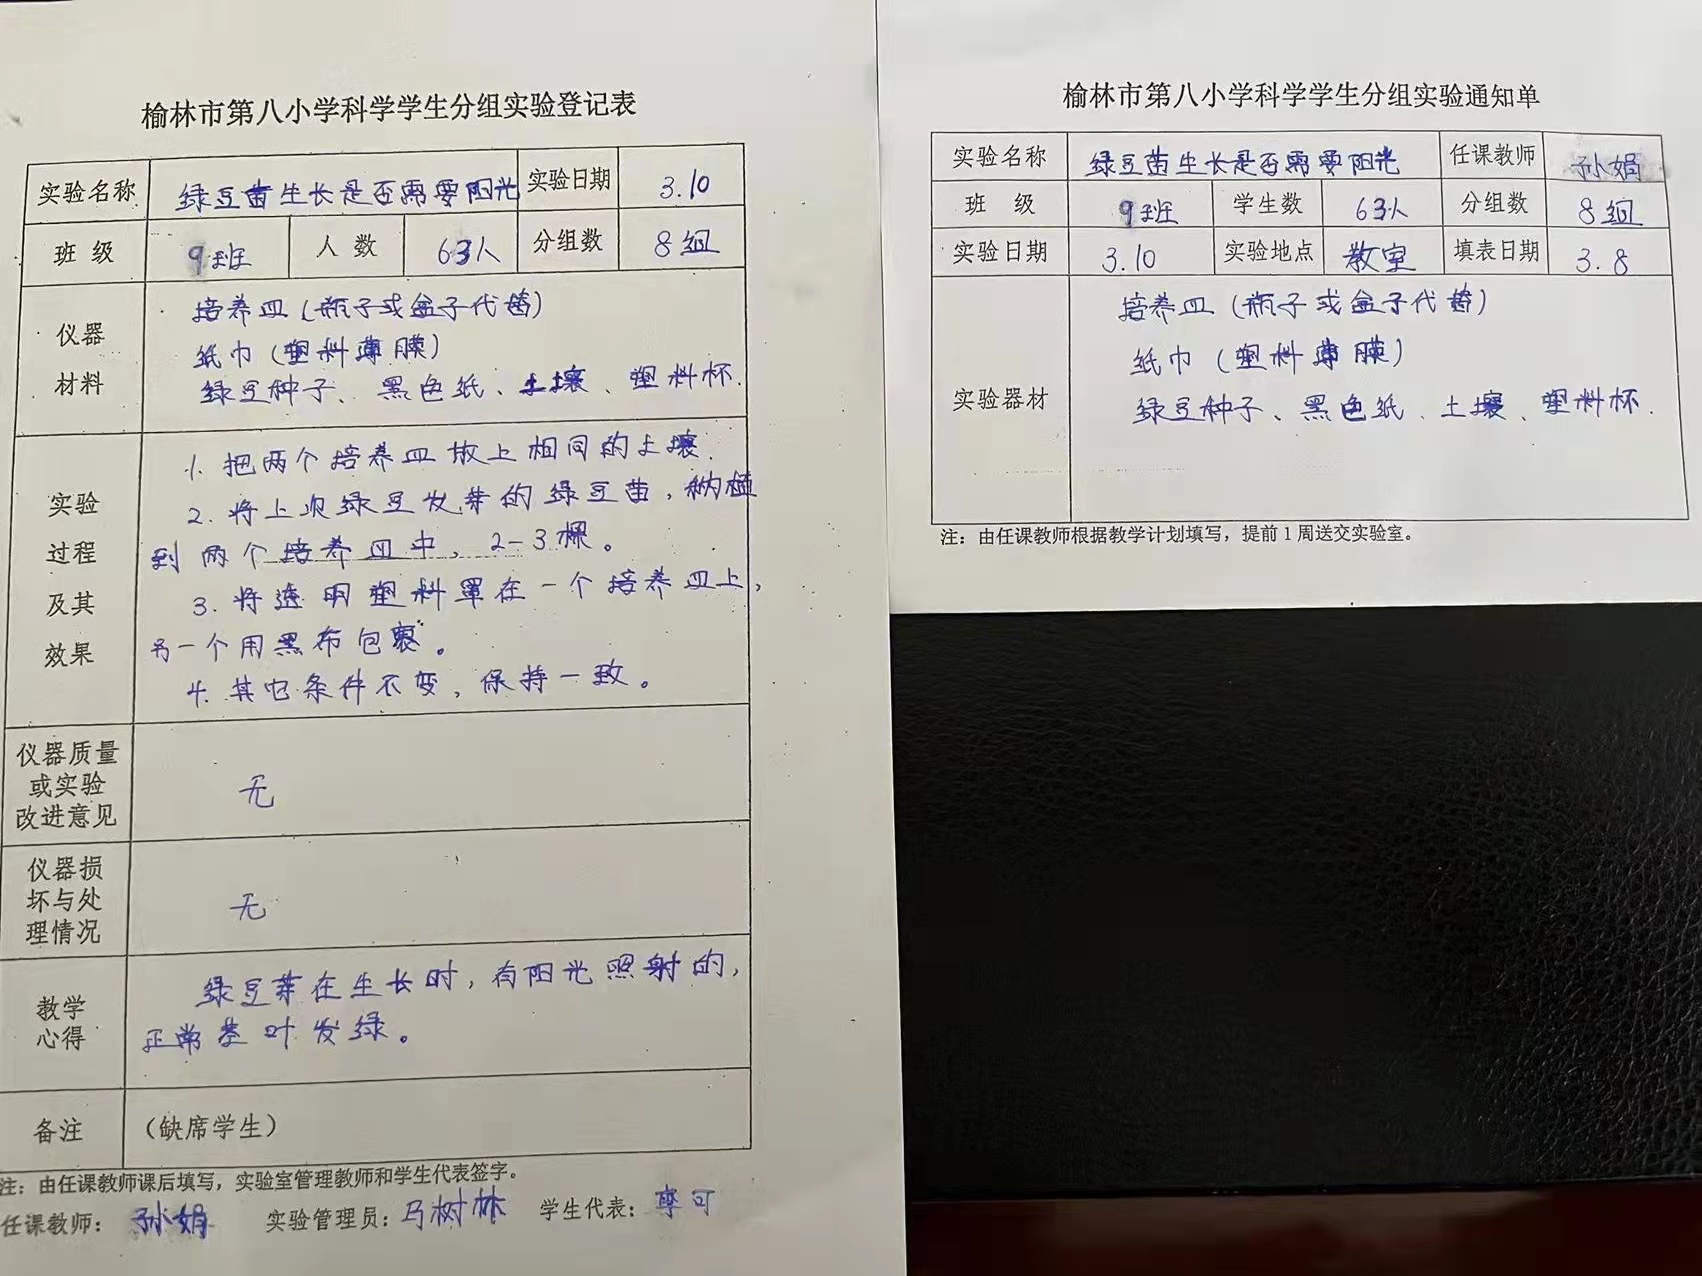 榆林市第八小学科学学生分组实验登记表
实验名称 绿豆苗生长是否需要阳光 实验日期 3.10
班 级 9班 人 数 63人 分组数 8组
仪器
材料
培养皿(瓶子或盒子代替)
纸巾(塑料薄膜)
绿豆种子、黑色纸、土壤、塑料杯.
实验
过程
及其
效果
1. 把两个培养皿放上相同的土壤.
2. 将上次绿豆发芽的绿豆苗,移植
到两个培养皿中,2-3棵。
3. 将透明塑料罩在一个培养皿上,
另一个用黑布包裹。
4. 其它条件不变,保持一致。
仪器质量
或实验
改进意见
无
仪器损
坏与处
理情况
无
教学
心得
绿豆芽在生长时,有阳光照射的,
正常茎叶发绿。
备注 (缺席学生)
注:由任课教师课后填写,实验室管理教师和学生代表签字。
任课教师: 孙娟 实验管理员:马树林 学生代表: 可
榆林市第八小学科学学生分组实验通知单
实验名称 绿豆苗生长是否需要阳光 任课教师 孙娟
班 级 9班 学生数 63人 分组数 8组
实验日期 3.10 实验地点 教室 填表日期 3.8
实验器材
培养皿(瓶子或盒子代替)
纸巾(塑料薄膜)
绿豆种子、黑色纸、土壤、塑料杯.
注:由任课教师根据教学计划填写,提前1周送交实验室。